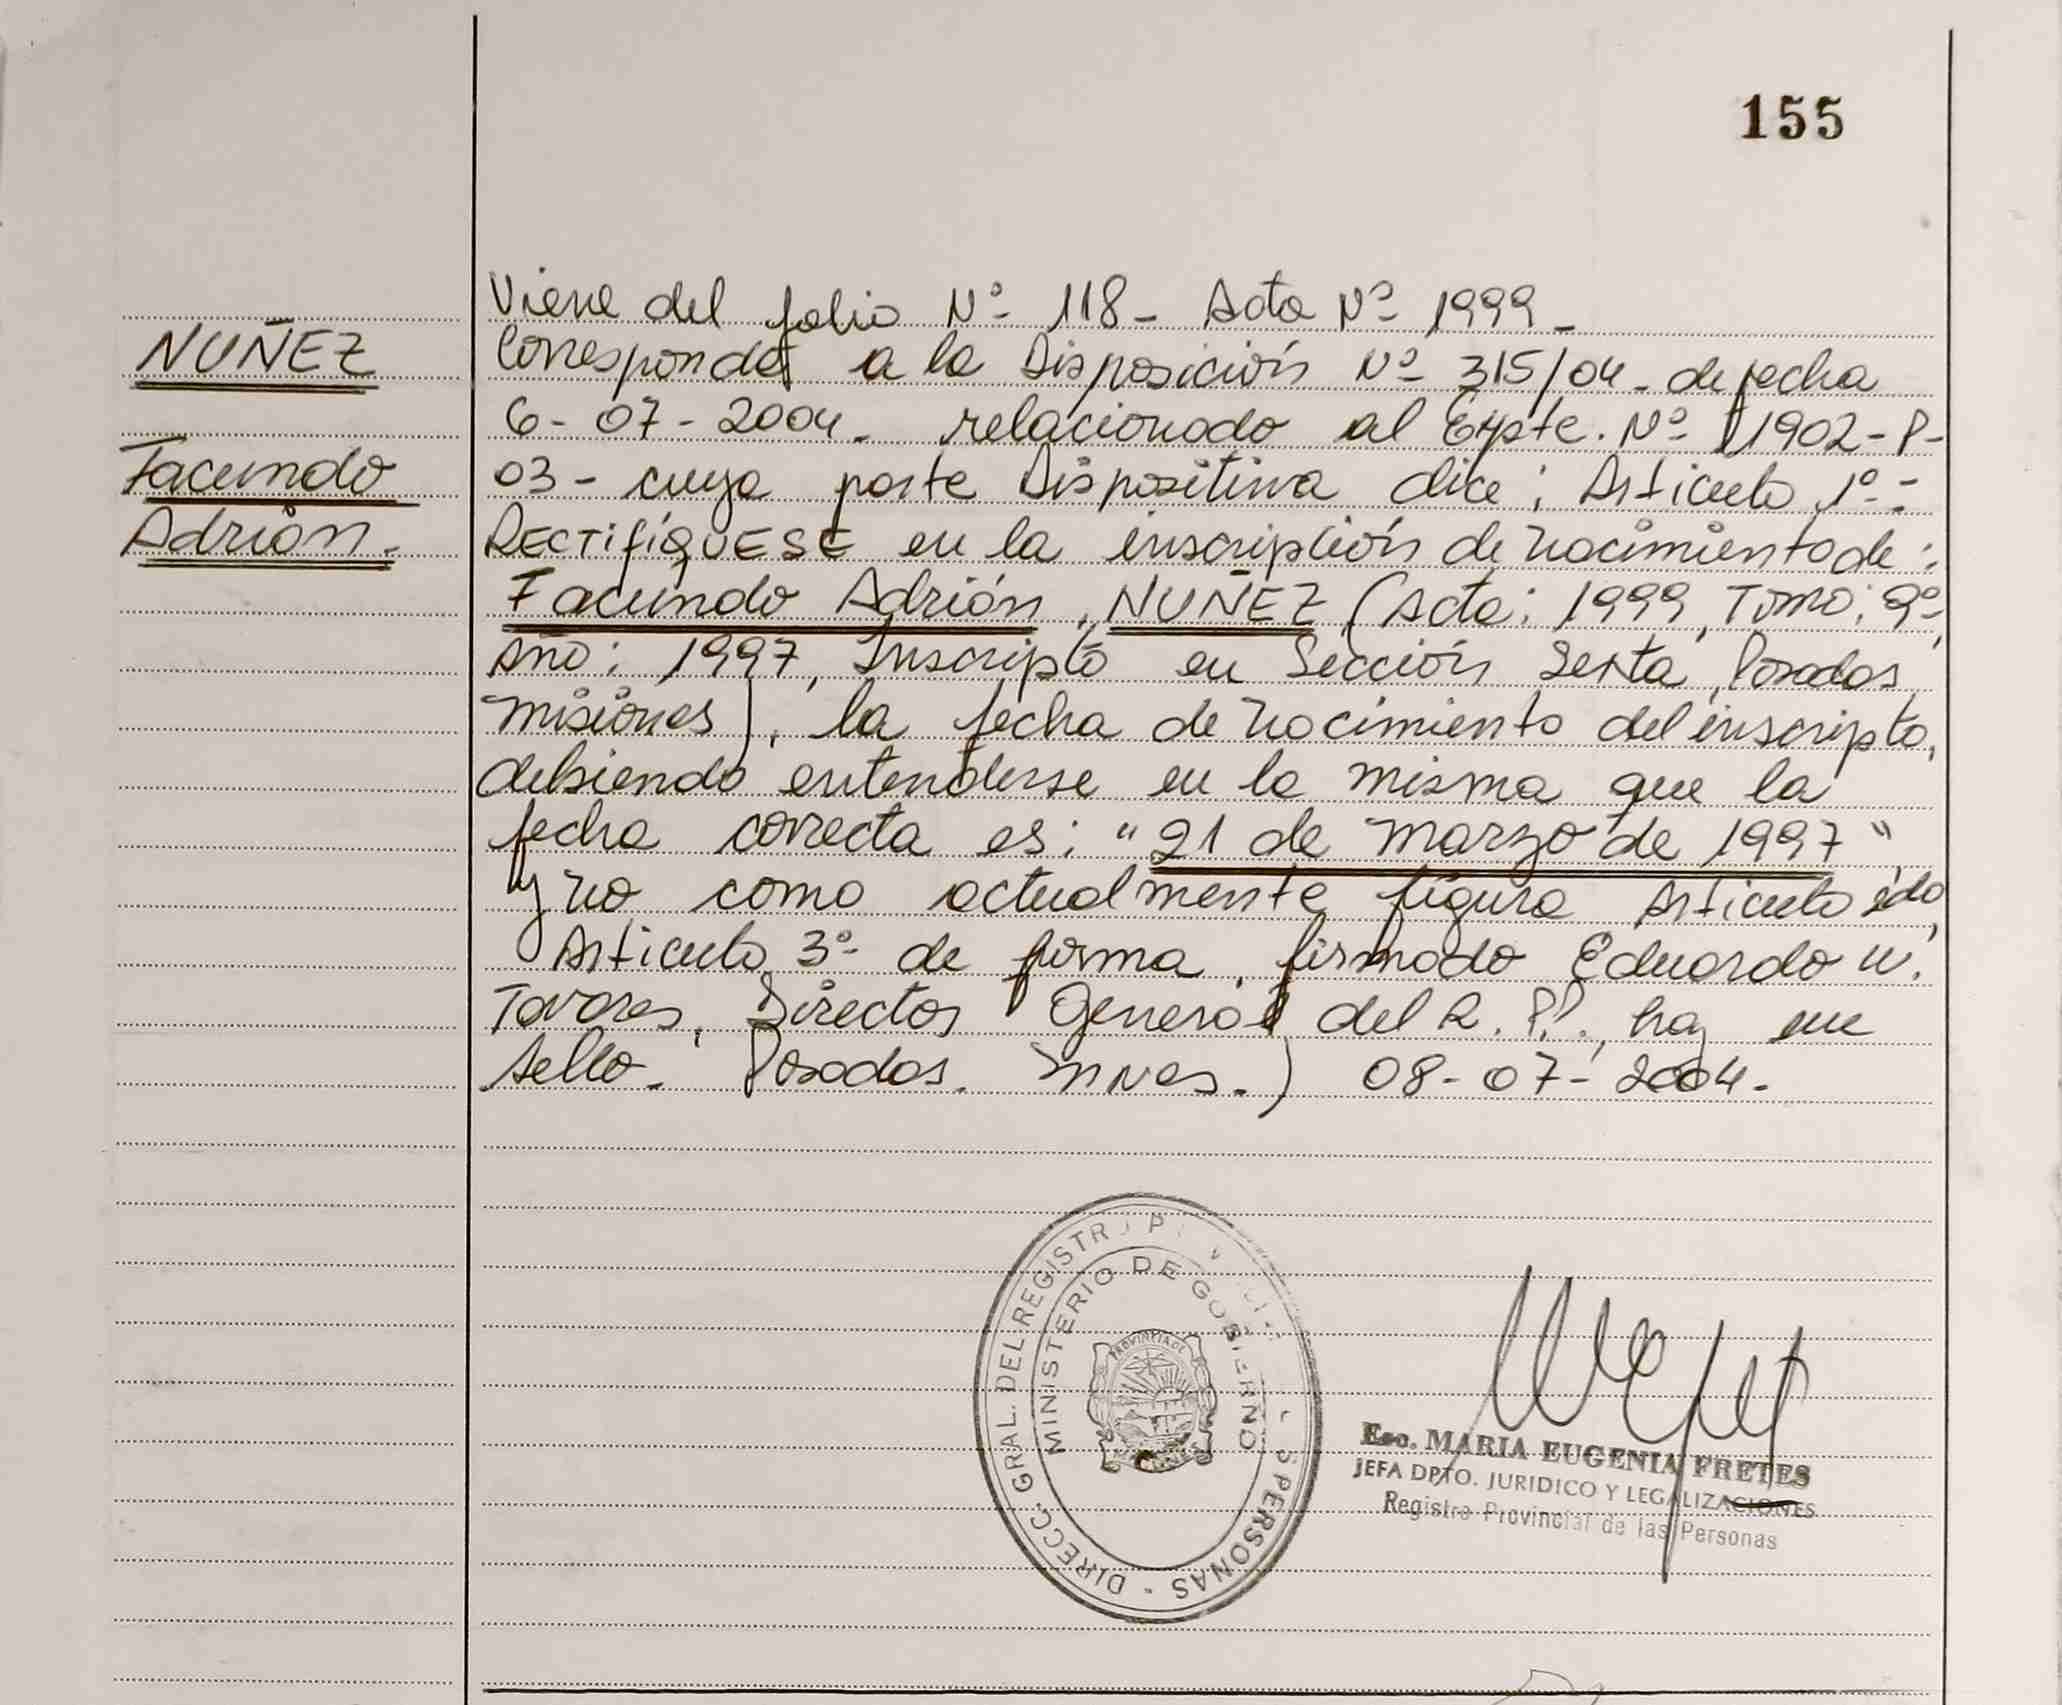 155
NUÑEZ
Facundo
Adrián.
Viene del folio Nº 118 - Acta Nº 1999 -
Corresponde a la Disposición Nº 315/04 - de fecha
6 - 07 - 2004 - relacionado al Expte. Nº 11902 - P -
03 - cuya parte Dispositiva dice: Artículo 1º -
RECTIFÍQUESE en la inscripción de nacimiento de:
Facundo Adrián, NUÑEZ (Acta: 1999, Tomo: 9º,
Año: 1997, Inscripto en Sección Sexta, Posadas,
Misiones), la fecha de nacimiento del inscripto,
debiendo entenderse en la misma que la
fecha correcta es: "21 de marzo de 1997"
y no como actualmente figura Artículo 2do,
Artículo 3º de forma, firmado Eduardo W.
Tavares, Director General del R.P.P., hay un
sello. Posadas. Mnes.) 08 - 07 - 2004.
DIRECC. GRAL. DEL REGISTRO PERSONAS
MINISTERIO DE GOBIERNO
PROVINCIA DE
Esc. MARIA EUGENIA FRETES
JEFA DPTO. JURIDICO Y LEGALIZACIONES
Registro Provincial de las Personas